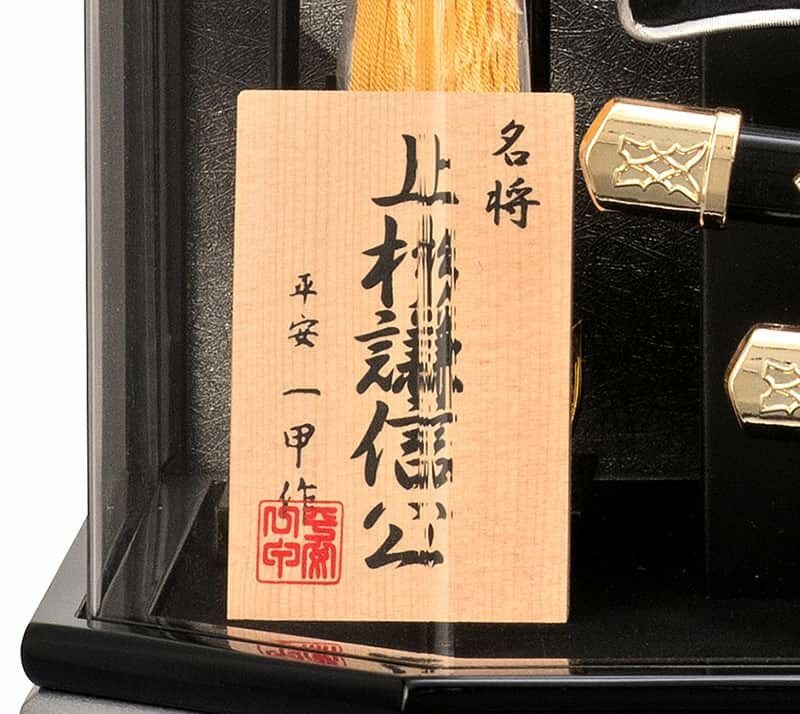 名将
上杉謙信公
平安一甲作